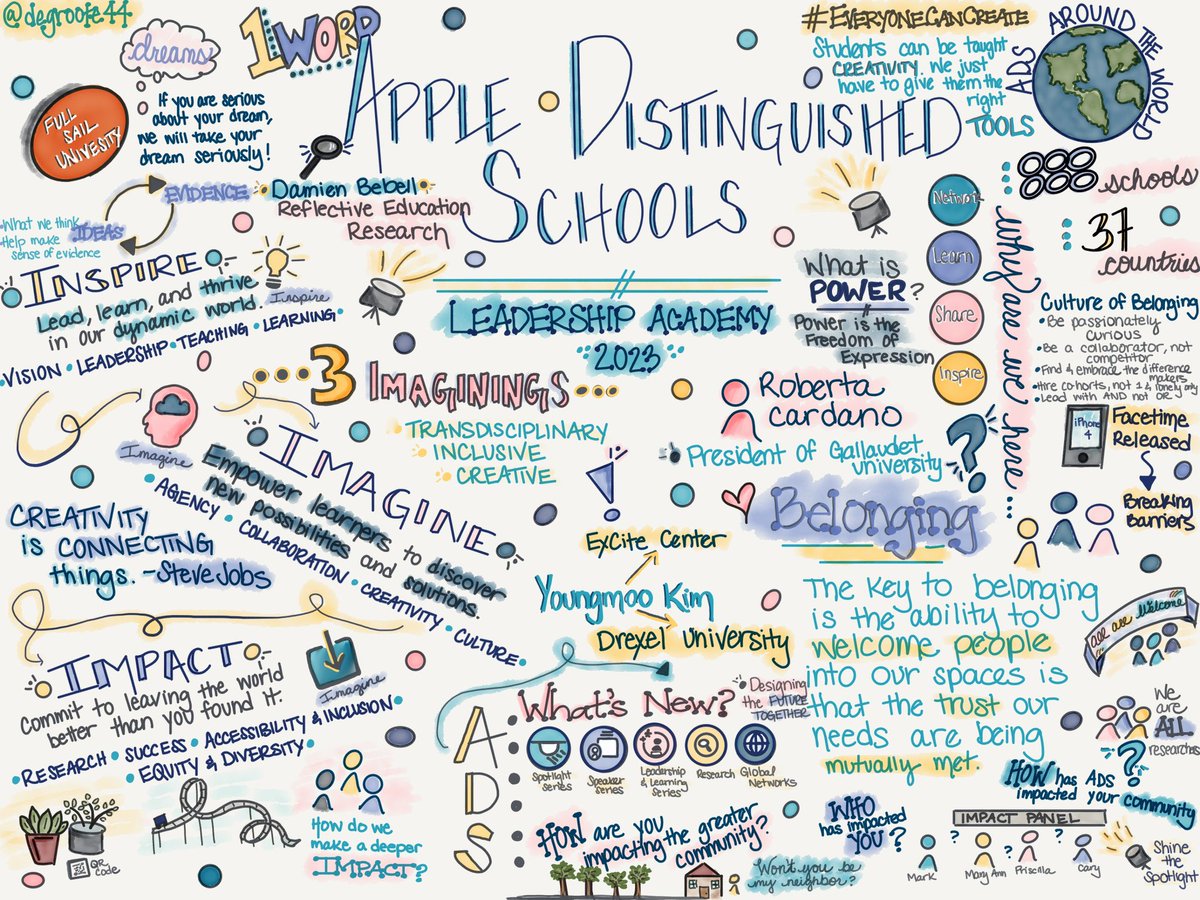 @degroote44
dreams
1 WORD
FULL
SAIL
UNIVESITY
If you are serious
about your dream,
we will take your
dream seriously!
APPLE DISTINGUISHED
SCHOOLS
LEADERSHIP ACADEMY
2023
#EVERYONECANCREATE
Students can be taught
CREATIVITY. We just
have to give them the
right
TOOLS
ADS AROUND THE WORLD
EVIDENCE
IDEAS
What we think
Help make
sense of evidence
Damien Bebell
Reflective Education
Research
INSPIRE
Lead, learn, and thrive
in our dynamic world.
Inspire
VISION • LEADERSHIP • TEACHING • LEARNING
...3 IMAGININGS...
TRANSDISCIPLINARY
INCLUSIVE
CREATIVE
!
Imagine
IMAGINE
Empower learners to discover
new possibilities and solutions.
• AGENCY • COLLABORATION • CREATIVITY • CULTURE •
CREATIVITY
is CONNECTING
things. -Steve Jobs
IMPACT
Commit to leaving the world
better than you found it.
Imagine
• RESEARCH • SUCCESS • ACCESSIBILITY & INCLUSION
• EQUITY & DIVERSITY •
QR
Code
How do we
make a deeper
IMPACT?
What is
POWER?
Power is the
Freedom of
Expression
Learn
Share
Inspire
why are we here...
schools
37
countries
Culture of Belonging
• Be passionately
curious
• Be a collaborator, not
competitor
• Find & embrace the difference
makers
• Hire cohorts, not 1 & lonely only
• Lead with AND not OR
iPhone
4
Facetime
Released
Breaking
Barriers
Roberta
Cardano
President of Gallaudet
university
?
Belonging
The key to belonging
is the ability to
welcome people
into our spaces is
that the trust our
needs are being
mutually met.
ExCite Center
Youngmoo Kim
Drexel University
ADS
What's New?
Designing
the FUTURE
TOGETHER
Spotlight
Series
Speaker
Series
Leadership
& Learning
Series
Research
Global
Networks
HOW are you
impacting the greater
community?
Won't you be
my neighbor?
all are welcome
We
are
ALL
researches
?
HOW has ADS
impacted your community
WHO
has impacted
YOU?
IMPACT PANEL
? ? ? ?
Mark
Mary Ann
Priscilla
Cary
Shine
the
Spotlight